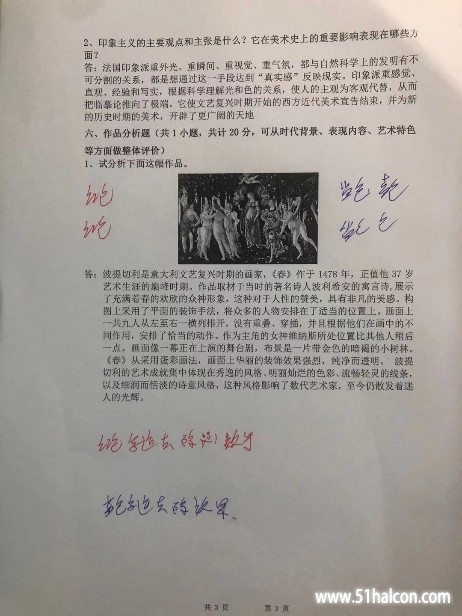 2、印象主义的主要观点和主张是什么？它在美术史上的重要影响表现在哪些方
面？
答：法国印象派重外光、重瞬间、重视觉、重气氛，都与自然科学上的发明有不
可分割的关系，都是想通过这一手段达到“真实感”反映现实。印象派重感觉、
直观、经验和写实，根据科学理解光和色的关系，使人的主观为客观代替，从而
把临摹论推向了极端。它使文艺复兴时期开始的西方近代美术宣告结束，并为新
的历史时期的美术，开辟了更广阔的天地
六、作品分析题（共1小题，共计20分，可从时代背景、表现内容、艺术特色
等方面做整体评价）
1、试分析下面这幅作品。
红色
红色
答：波提切利是意大利文艺复兴时期的画家，《春》作于1478年，正值他37岁
艺术生涯的巅峰时期。作品取材于当时的著名诗人波利希安的寓言诗，展
示了充满着春的欢欣的众神形象，这种对于人性的赞美，具有非凡的美感。构
图上采用了平面的装饰手法，将众多的人物安排在了适当的位置上，画面上
一共九人从左至右一横列排开，没有重叠、穿插，并且根据他们在画中的不
同作用，安排了恰当的动作。作为主角的女神维纳斯所处位置比其他人稍后
一点。画面像一幕正在上演的舞台剧，布景是一片带金色的暗褐的小树林。
《春》从采用蛋彩画法，画面上华丽的装饰效果强烈，纯净而透明。 波提
切利的艺术成就集中体现在秀逸的风格、明丽灿烂的色彩、流畅轻灵的线条，
以及细润而恬淡的诗意风格，这种风格影响了数代艺术家，至今仍散发着迷
人的光辉。
共 3 页 第 3 页
www.51halcon.com